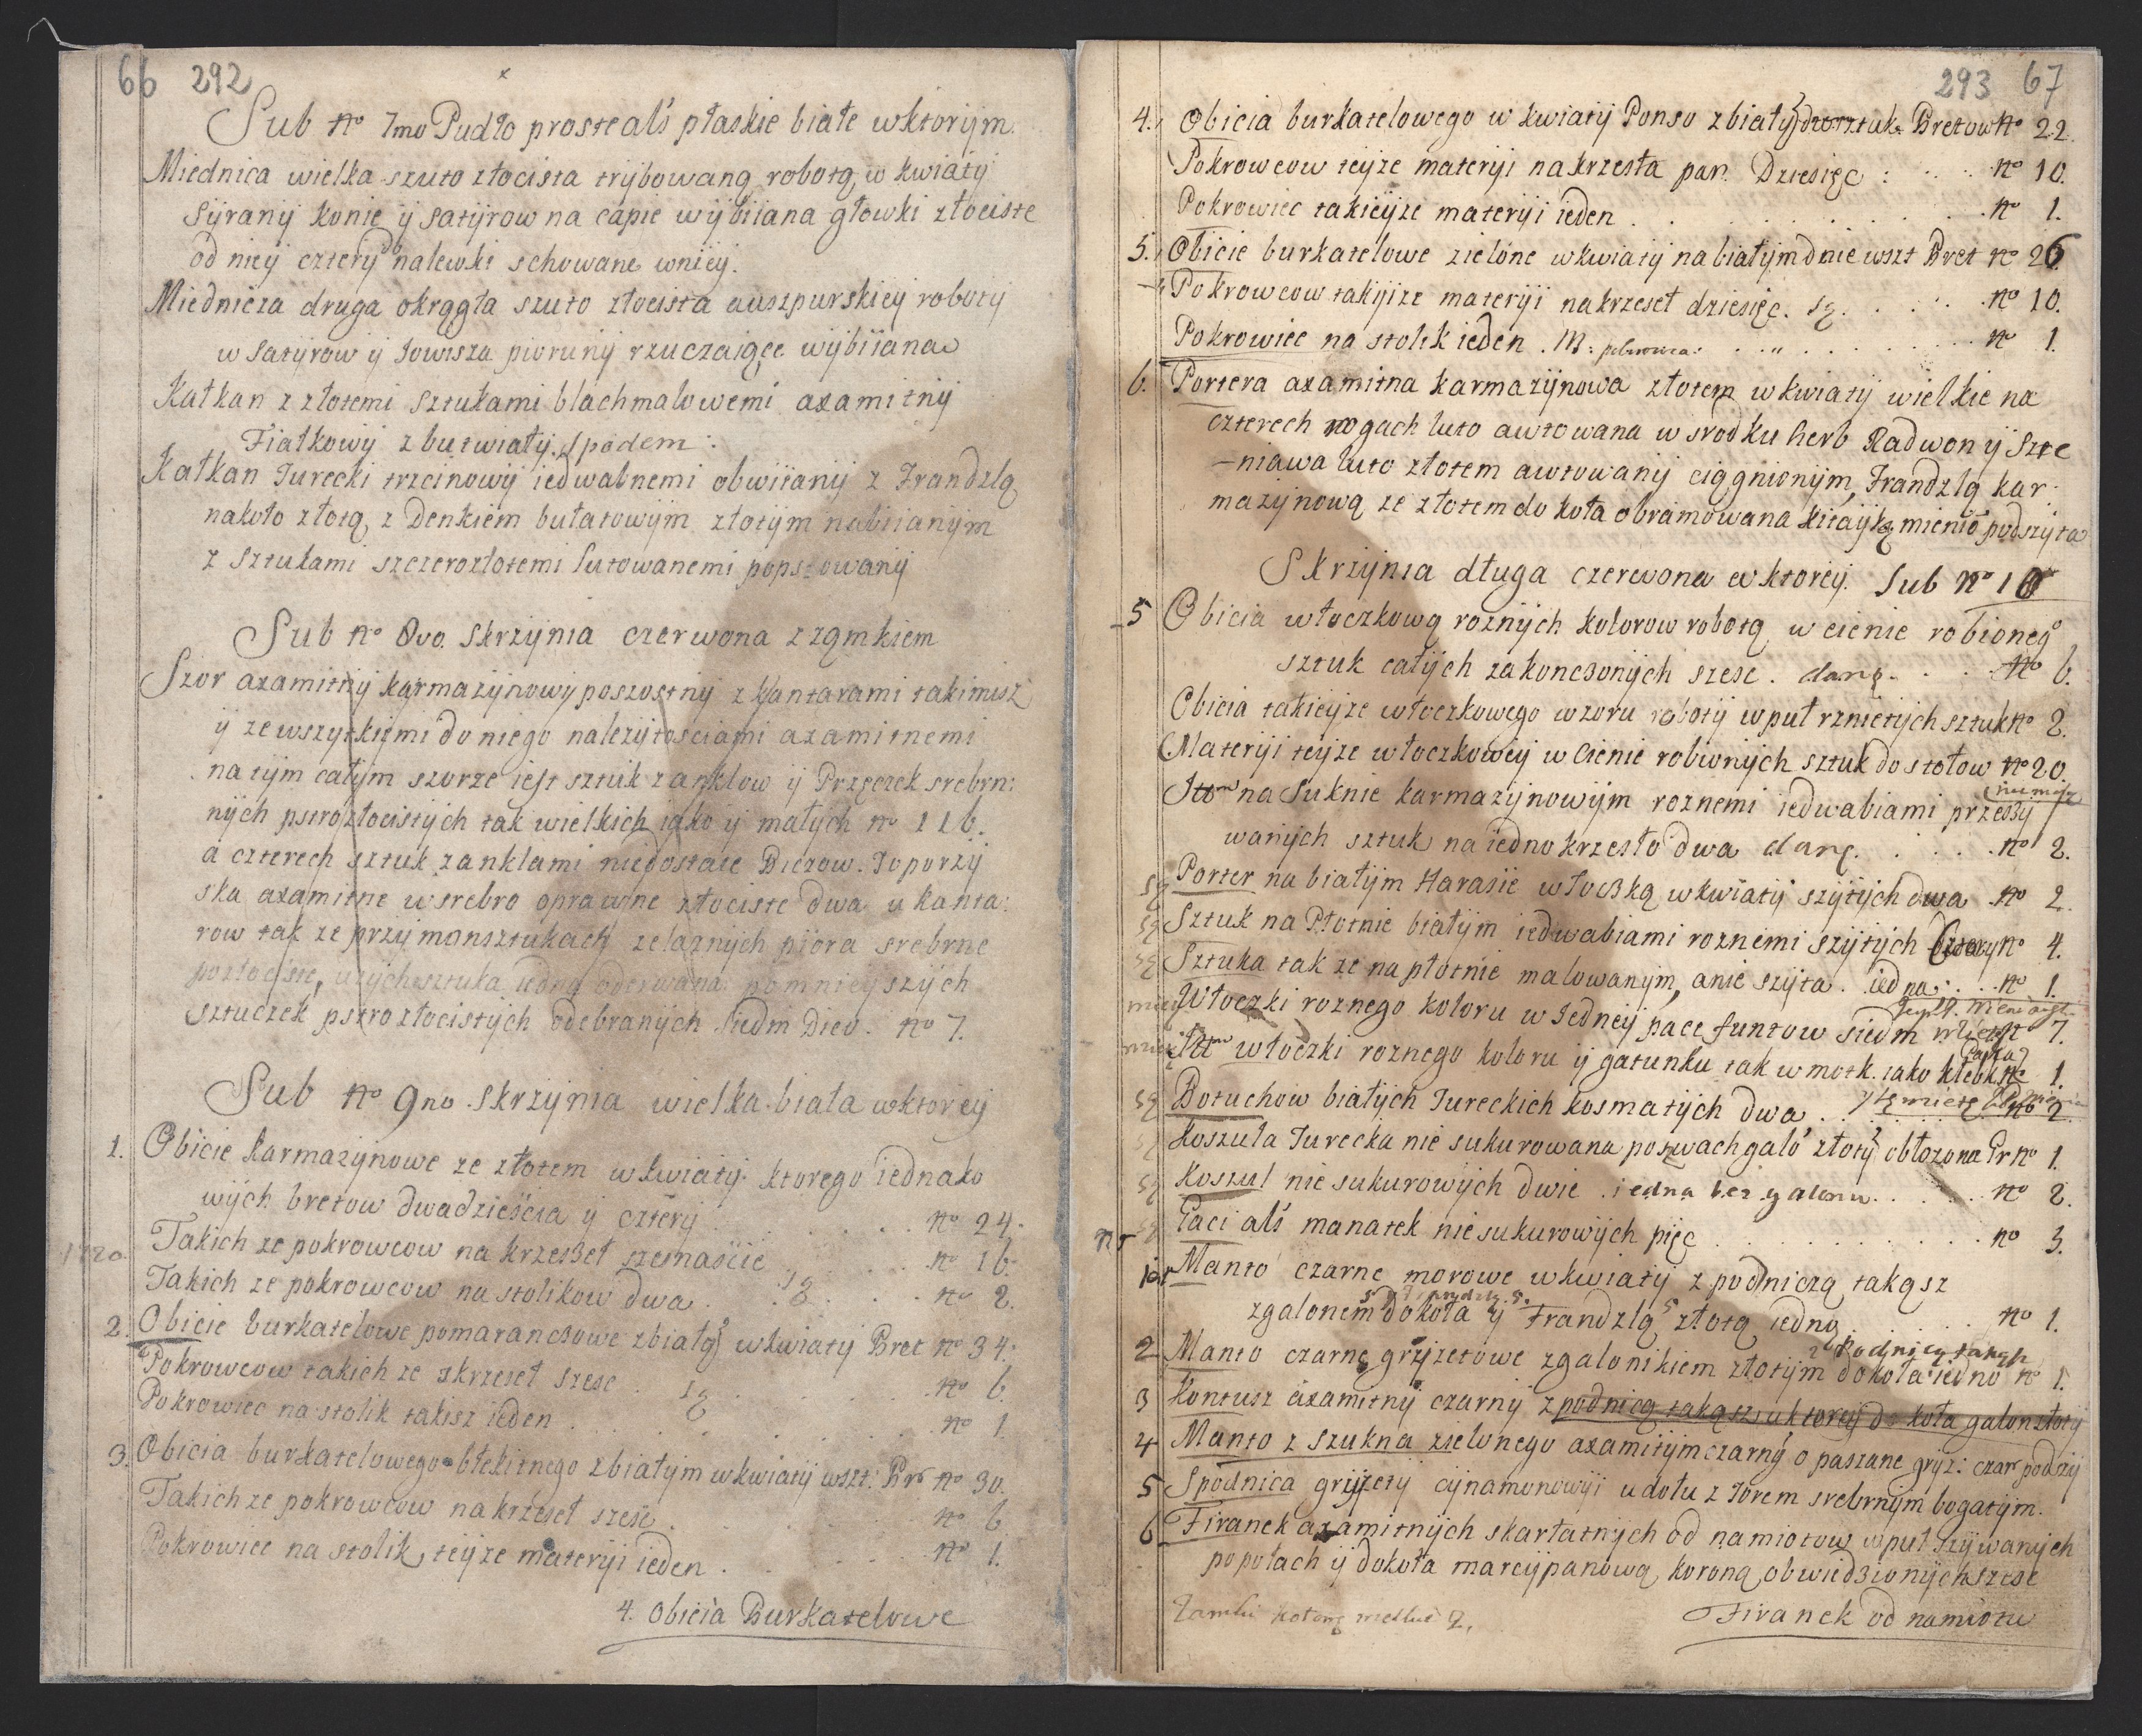 66 292
Sub No 7mo Pudło proste als płaskie białe wktorÿm.
Miednica wielka szuto złocista trÿbowaną robotą w kwiatÿ
Sÿranÿ konie ÿ satÿrow na capie wÿbiiana głowki złociste
od nieÿ czterÿ nalewki schowane wnieÿ.
Miednicza druga okrągła szuto złocista auszpurskieÿ robotÿ
w Satÿrow ÿ Iowisza piorunÿ rzuczaiące wÿbiiana
Kałkan z złotemi sztukami blachmalowemi axamitnÿ
Fiałkowÿ z butwiałÿ spodem:
Kałkan Turecki trzcinowÿ iedwabnemi obwiianÿ z Frandzlą
nakoło złotą, z Denkiem bułatowÿm złotÿm nabiianÿm
z sztukami szczerozłotemi lutowanemi popsowanÿ
Sub No 8vo. Skrzÿnia czerwona z ząmkiem
Szor axamitnÿ karmazÿnowÿ poszostnÿ z kantarami takimisz
ÿ ze wszÿtkiemi do niego należÿtosciami axamitnemi
na tÿm całÿm szorze iest sztuk zanklow ÿ Przęczek srebrn:
nÿch pstrozłocistÿch tak wielkich iako ÿ małÿch no 116.
a czterech sztuk zanklami niedostaie Biczow. Toporzÿ
ska axamitne w srebro oprawne złociste dwa u kanta:
row tak ze przÿ monsztukach zelaznÿch piora srebrne
pozłociste, u tÿch sztuka iedna oderwana pomnieÿszÿch
sztuczek pstrozłocistÿch odebranÿch Siedm Dico. no 7.
Sub No 9no Skrzÿnia wielka biała wktoreÿ
1. Obicie karmazÿnowe ze złotem w kwiatÿ ktorego iednako
wÿch bretow dwadziescia ÿ czterÿ . . . . no 24.
Takich ze pokrowcow na krzeseł szesnascie . . . no 16.
Takich ze pokrowcow na stolikow dwa . . są . . no 2.
2. Obicie burkatelowe pomaranczowe zbiałą w kwiatÿ Bret no 34.
Pokrowcow takich ze zkrzeseł szesc . są . . no 6
Pokrowiec na stolik takisz ieden . . . . no 1
3. Obicia burkatelowego błekitnego zbiałym w kwiatÿ wszt: Br no 30.
Takich ze pokrowcow na krzeseł szesc . . . . no 6
Pokrowiec na stolik, teÿze materÿi ieden . . . . no 1.
4. Obicia Burkatelowe
293 67
4. Obicia burkatelowego w kwiatÿ Ponso z białÿ Bretow no 22.
Pokrowcow teÿze materÿi na krzesła par. Dziesięc : . . . no 10.
Pokrowiec takieÿze materÿi ieden . . . . no 1.
5. Obicie burkatelowe zielone w kwiatÿ na białÿm dnie wszt Bret no 26
Pokrowcow takÿize materÿi na krzeseł dziesięc. są . . . no 10.
Pokrowiec na stolik ieden . . . . no 1.
6. Portera axamitna karmazÿnowa złotem w kwiatÿ wielkie na
czterech rogach luto awtowana w srodku herb Radwon ÿ Szre
-niawa luto złotem awtowanÿ ciągnionÿm, Frandzlą kar:
mazÿnową ze złotem do koła obramowana kitaÿką mienio podszÿta
Skrzÿnia długa czerwona w ktoreÿ. Sub No 10
5 Obicia włoczkową roznÿch kolorow robotą w cienie robionego
sztuk całÿch zakonczonÿch szesc . dano . . no 6.
Obicia takieÿze włoczkowego wzoru robotÿ wpuł rznietÿch sztuk no 2.
Materÿi teÿze włoczkoweÿ w Cienie robionÿch sztuk do stołow no 20.
Item na Suknie karmazÿnowÿm roznemi iedwabiami przeszÿ
wanÿch sztuk na iedno krzesło dwa danę . . . . no 2.
są Porter na białÿm Harasie włoczką w kwiatÿ szÿtÿch dwa no 2.
są Sztuk na Płotnie białÿm iedwabiami roznemi szÿtÿch Czterÿ no 4.
są Sztuka tak ze na płotnie malowanÿm, anie szÿta . iedna . . no 1.
Włoczki roznego koloru w Iedneÿ pace funtow Siedm no 7.
Item włoczki roznego koloru ÿ gatunku tak w motk. iako kłebk. Paka no 1.
są Dotuchow białÿch Tureckich kosmatÿch dwa . . no 2
są Koszula Turecka nie sukurowana poszwach galo złotÿ obłozona Pr no 1.
są Koszul nie sukurowÿch dwie . iedna bez galonu . . . no 2.
są Paci als manatek niesukurowÿch pięc . . . . no 3.
Manto czarne morowe w kwiatÿ z podniczą takąsz
zgalonem dokoła ÿ Frandzlą złotą iedno . . . . no 1.
2 Manto czarnę grÿzetowe zgalonikiem złotÿm dokoła iedno no 1.
3 Kontusz axamitnÿ czarnÿ z podnicą takąsz u ktoreÿ do koła galon złotÿ
4 Manto z szukna zielonego axamitÿm czarnÿ o paszane grÿz: czar podszÿ
5 Spodnica grÿzetÿ cÿnamonowÿi u dołu z Torem srebrnÿm bogatÿm.
6 Firanek axamitnÿch skarłatnÿch od namiotow wpuł szÿwanÿch
popołach ÿ dokoła marcÿpanową koroną obwiedzionÿch szesc
Firanek od namiotu